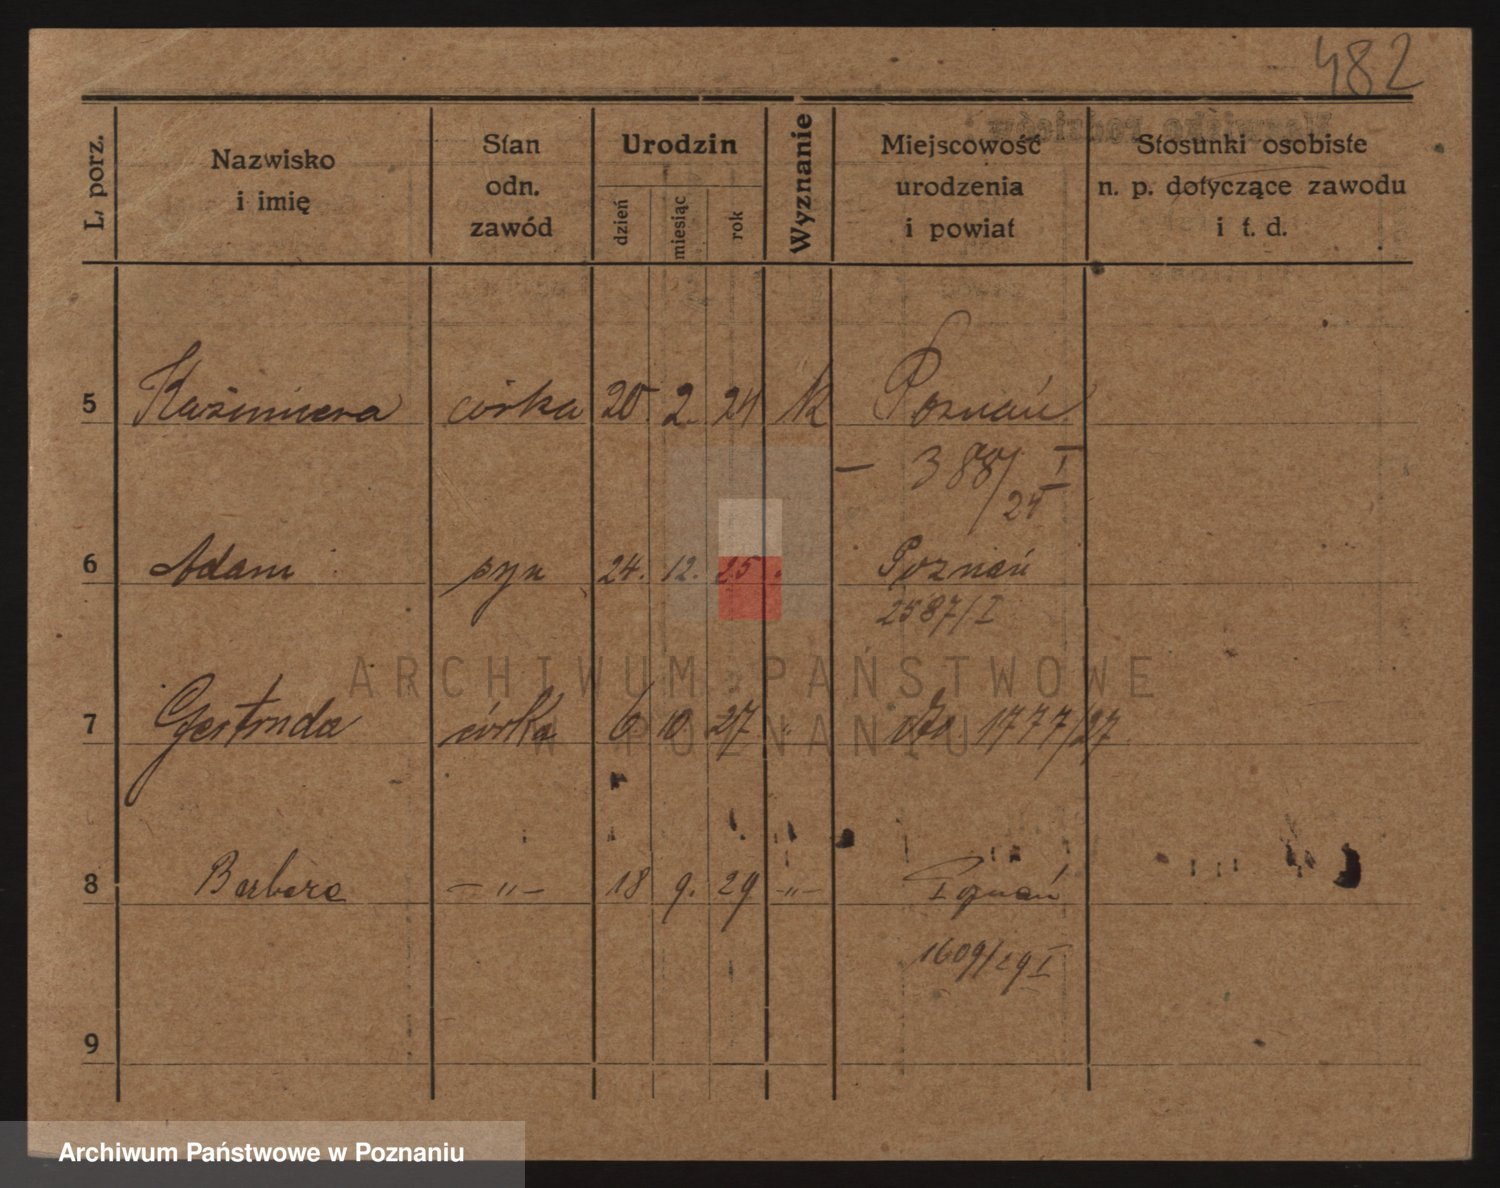 482
L. porz.
Nazwisko
i imię
Stan
odn.
zawód
Urodzin
dzień
miesiąc
rok
Wyznanie
Miejscowość
urodzenia
i powiat
Stosunki osobiste
n. p. dotyczące zawodu
i t. d.
5 Kazimiera córka 20. 2. 24 K Poznań
— 388/24 I
6 Adam syn 24. 12. 25. Poznań
2587/I
ARCHIWUM PAŃSTWOWE
W POZNANIU
7 Gertruda córka 6 10 27 " dto 1777/27
8 Barbara — " — 18 9. 29 — " — Poznań
1609/29 I
9
Archiwum Państwowe w Poznaniu